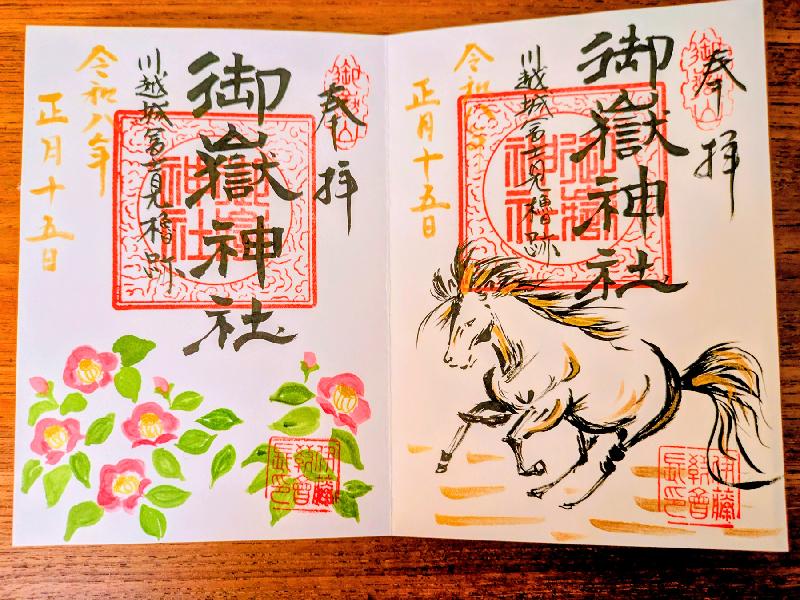 奉拝
御嶽山
御嶽神社
御嶽神社
川越城富士見櫓跡
令和八年
正月十五日
伊藤
奉拝
御嶽山
御嶽神社
御嶽神社
川越城富士見櫓跡
令和八年
正月十五日
伊藤